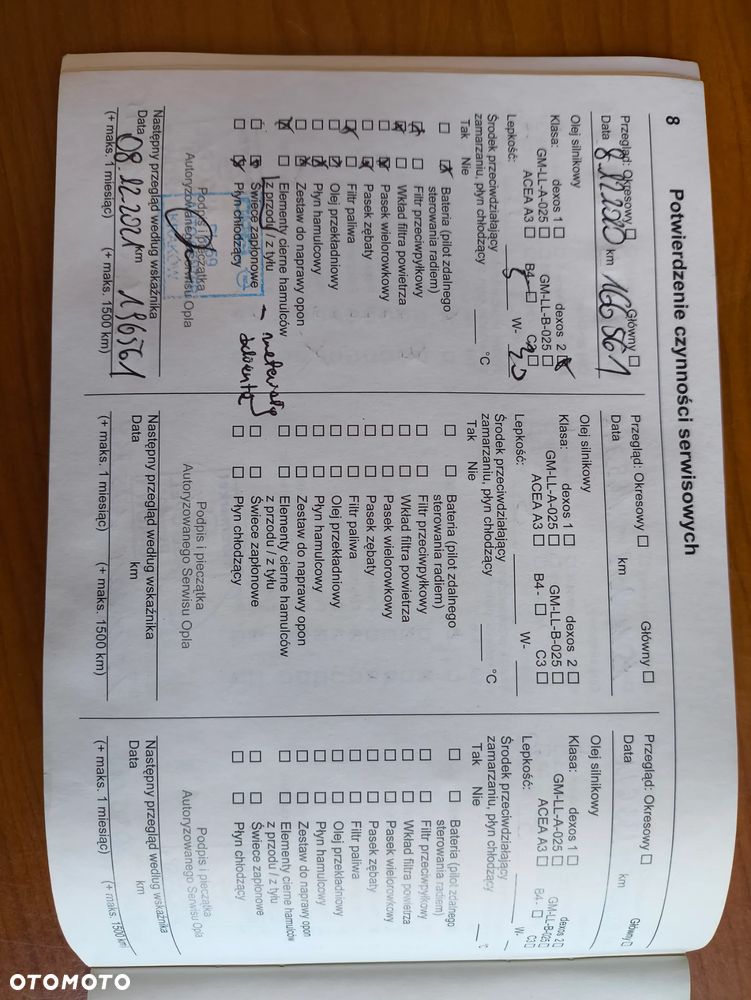 8
Potwierdzenie czynności serwisowych
Przegląd: Okresowy □ Główny □
Data 8.12.2020 km 166561
Olej silnikowy
Klasa: dexos 1 □ dexos 2 ☒
GM-LL-A-025 □ GM-LL-B-025 □
ACEA A3 □ B4- □ C3 □
Lepkość: 5 W- 30
Środek przeciwdziałający
zamarzaniu, płyn chłodzący °C
Tak Nie
□ ☒ Bateria (pilot zdalnego
sterowania radiem)
☒ □ Filtr przeciwpyłkowy
☒ □ Wkład filtra powietrza
□ ☒ Pasek wielorowkowy
□ ☒ Pasek zębaty
☒ □ Filtr paliwa
□ ☒ Olej przekładniowy
□ ☒ Płyn hamulcowy
□ ☒ Zestaw do naprawy opon
☒ □ Elementy cierne hamulców
z przodu / z tyłu
□ ☒ Świece zapłonowe
□ ☒ Płyn chłodzący
Podpis i pieczątka
Autoryzowanego Serwisu Opla
Następny przegląd według wskaźnika
Data 08.12.2021 km 196561
(+ maks. 1 miesiąc) (+ maks. 1500 km)
Przegląd: Okresowy □ Główny □
Data km
Olej silnikowy
Klasa: dexos 1 □ dexos 2 □
GM-LL-A-025 □ GM-LL-B-025 □
ACEA A3 □ B4- □ C3 □
Lepkość: W-
Środek przeciwdziałający
zamarzaniu, płyn chłodzący °C
Tak Nie
□ □ Bateria (pilot zdalnego
sterowania radiem)
□ □ Filtr przeciwpyłkowy
□ □ Wkład filtra powietrza
□ □ Pasek wielorowkowy
□ □ Pasek zębaty
□ □ Filtr paliwa
□ □ Olej przekładniowy
□ □ Płyn hamulcowy
□ □ Zestaw do naprawy opon
□ □ Elementy cierne hamulców
z przodu / z tyłu
□ □ Świece zapłonowe
□ □ Płyn chłodzący
Podpis i pieczątka
Autoryzowanego Serwisu Opla
Następny przegląd według wskaźnika
Data km
(+ maks. 1 miesiąc) (+ maks. 1500 km)
Przegląd: Okresowy □ Główny □
Data km
Olej silnikowy
Klasa: dexos 1 □ dexos 2 □
GM-LL-A-025 □ GM-LL-B-025 □
ACEA A3 □ B4- □ C3 □
Lepkość: W-
Środek przeciwdziałający
zamarzaniu, płyn chłodzący °C
Tak Nie
□ □ Bateria (pilot zdalnego
sterowania radiem)
□ □ Filtr przeciwpyłkowy
□ □ Wkład filtra powietrza
□ □ Pasek wielorowkowy
□ □ Pasek zębaty
□ □ Filtr paliwa
□ □ Olej przekładniowy
□ □ Płyn hamulcowy
□ □ Zestaw do naprawy opon
□ □ Elementy cierne hamulców
z przodu / z tyłu
□ □ Świece zapłonowe
□ □ Płyn chłodzący
Podpis i pieczątka
Autoryzowanego Serwisu Opla
Następny przegląd według wskaźnika
Data km
(+ maks. 1 miesiąc) (+ maks. 1500 km)
OTOMOTO